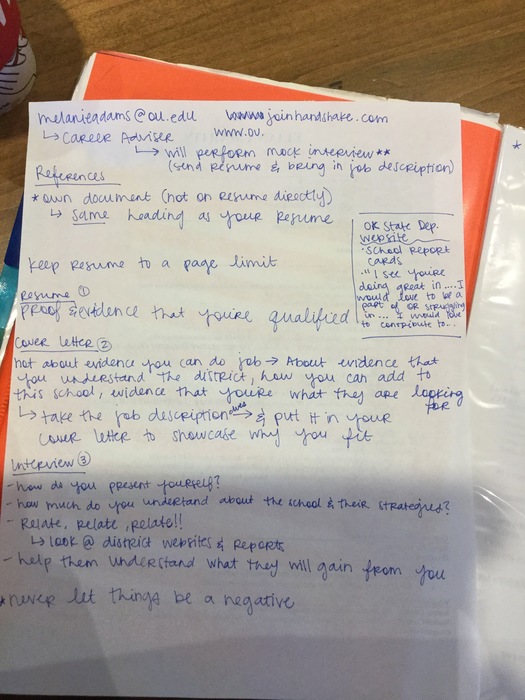 melanieadams@ou.edu www.joinhandshake.com
↳ Career Adviser www.ou.
↳ will perform mock interview**
(send resume & bring in job description)
References
* own document (not on resume directly)
↳ same heading as your resume
keep resume to a page limit
OK State Dep.
website
• School report
cards
• "I see you're
doing great in.... I
would love to be a
part of OR struggling
in... I would love
to contribute to...
Resume ①
Proof & evidence that you're qualified
Cover letter ②
not about evidence you can do job → About evidence that
you understand the district, how you can add to
this school, evidence that you're what they are looking
for
↳ take the job description → & put it in your
cover letter to showcase why you fit
Interview ③
- how do you present yourself?
- how much do you understand about the school & their strategies?
- Relate, relate, relate!!
↳ look @ district websites & reports
- help them understand what they will gain from you
* never let things be a negative